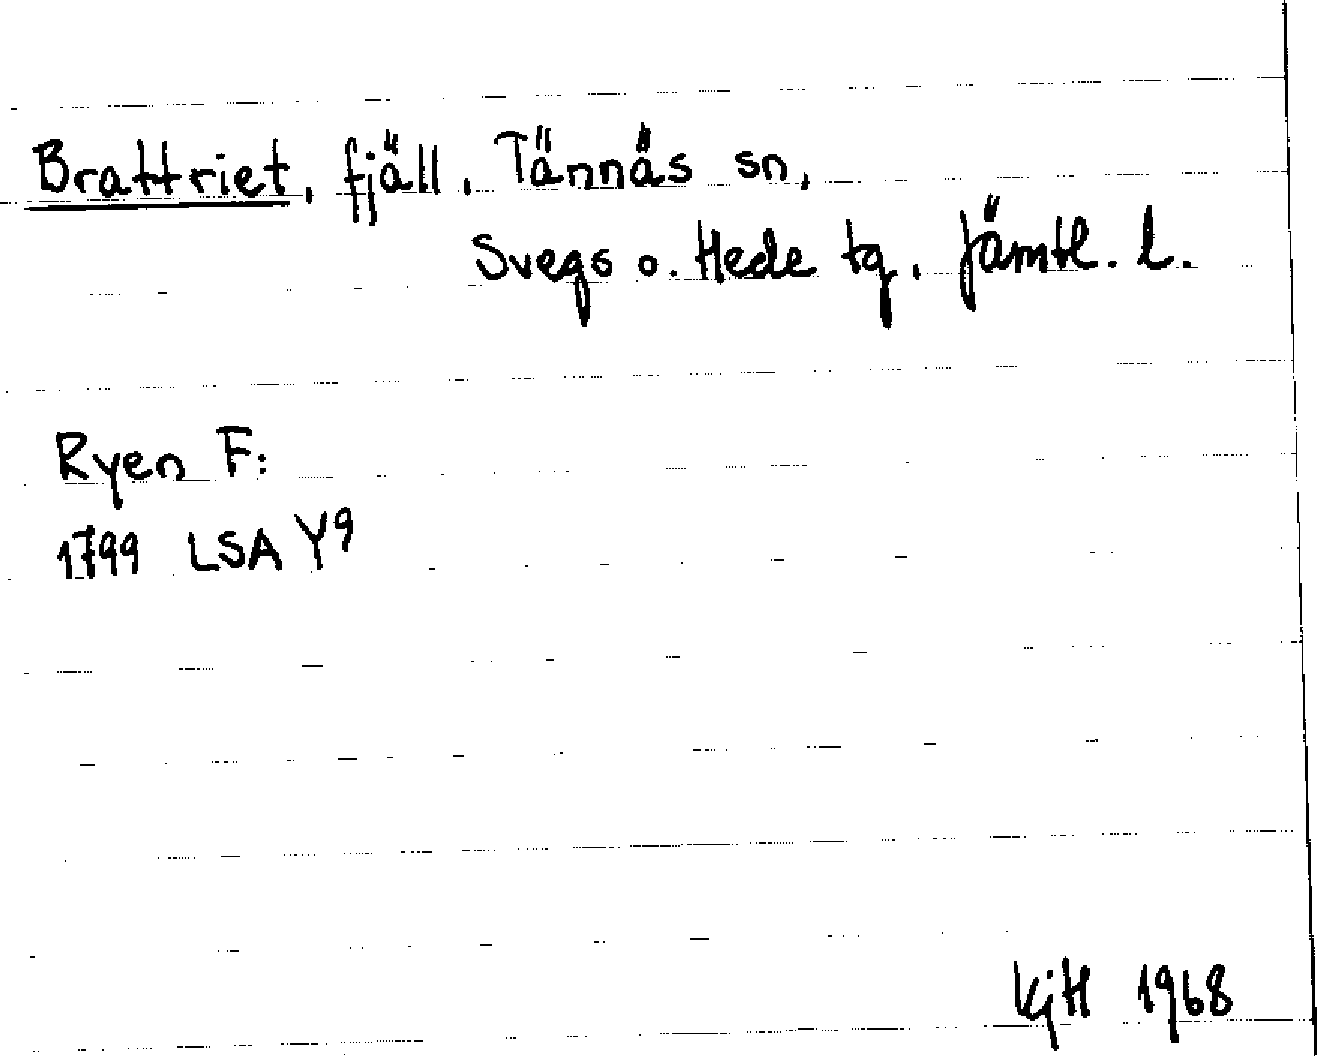 Brattriet, fjäll, Tännäs sn,
Svegs o. Hede tg, Jämtl. l.
Ryen F:
1799 LSA Y9
KjH 1968